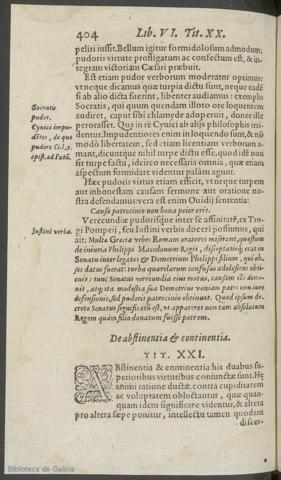 404 Lib. VI. Tit. XX.
peliri iussit. Bellum igitur formidolosum admodum,
pudoris virtute profligatum ac confectum est, & in-
tegram victoriam Cæsari præbuit.
Est etiam pudor verborum moderator optimus:
vt neque dicamus quæ turpia dictu sunt, neque eadē
si ab alio dicta fuerint, libenter audiamus: exemplo
Socratis, qui quum quendam illoto ore loquentem
audiret, caput sibi chlamyde adoperuit, donec ille
perorasset. Quą in re Cynici ab alijs philosophis irri-
dentur. Impudentiores enim in loquendo sunt, & nō
modò libertatem, sed etiam licentiam verborum a-
mant, dicuntque nihil turpe dictu esse, quod idē non
sit turpe factu, ideirco necessaria omnia, quæ etiam
aspectum formidare videntur palàm agunt.
Socratis
pudor.
Cynici impu-
dētes, de quo
pudore Ci.l,9.
epist. ad Patū.
Hæc pudoris virtus etiam efficit, vt neque turpem
aut inhonestam causam sermone aut oratione no-
stra defendamus: vera est enim Ouidij sententia:
Causa patrocinio non bona peior erit.
Verecundiæ pudorisque inter se affinitatē, ex Tro-
gi Pompeij, seu Iustini verbis doceri possumus, qui
ait: Multæ Græciæ vrbes Romam oratores miserant, questum
de iniuria Philippi Macedonum Regis, disceptatioq; erat in
Senatu inter legatos & Demetrium Philippi filium, qui ob-
ses datus fuerat: turba querelarum confusus adolescens obti-
cuit: tunc Senatus verecundia eius motus, causam illi dona-
uit, atq; ita modestia sua Demetrius veniam patri non iure
defensionis, sed pudoris patrocinio obtinuit. Quod ipsum de-
creto Senatus significatū est, vt appareret non tam absolutum
Regem quàm filio donatum fuisse patrem.
Iustini verba.
De abstinentia & continentia.
TIT. XXI.
ABstinentia & continentia his duabus su-
perioribus virtutibus coniunctæ sunt. Hę
animi ratione ductæ, contra cupiditatem
ac voluptatem obluctantur, quæ quan-
quam idem significare videntur, & altera
pro altera sæpe ponitur, intellectu tamen quodam
discer-
Biblioteca de Galicia